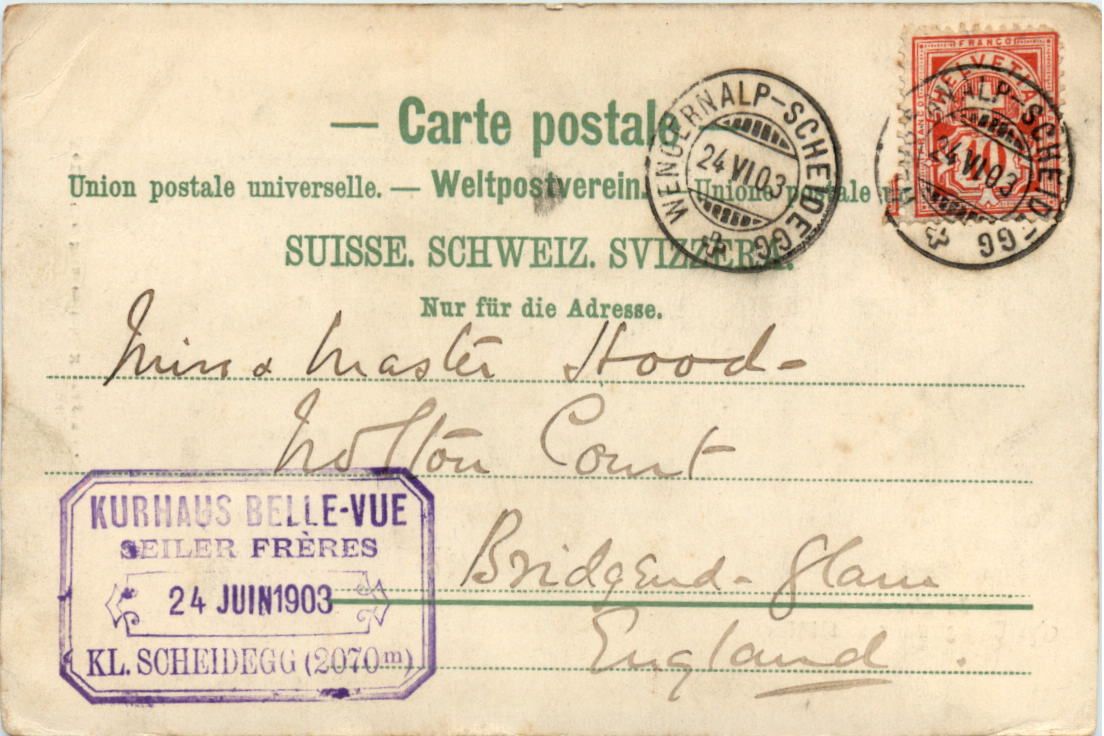 — Carte postale —
Union postale universelle. — Weltpostverein. — Unione postale
SUISSE. SCHWEIZ. SVIZZERA.
Nur für die Adresse.
WENGERNALP-SCHEIDEGG
24 VI 03
FRANCO
HELVETIA
10
WENGERNALP-SCHEIDEGG
24 VI 03
Miss & Master Hood -
Nolton Court
Bridgend - Glam
England.
KURHAUS BELLE-VUE
SEILER FRÈRES
24 JUIN 1903
KL. SCHEIDEGG (2070 m)